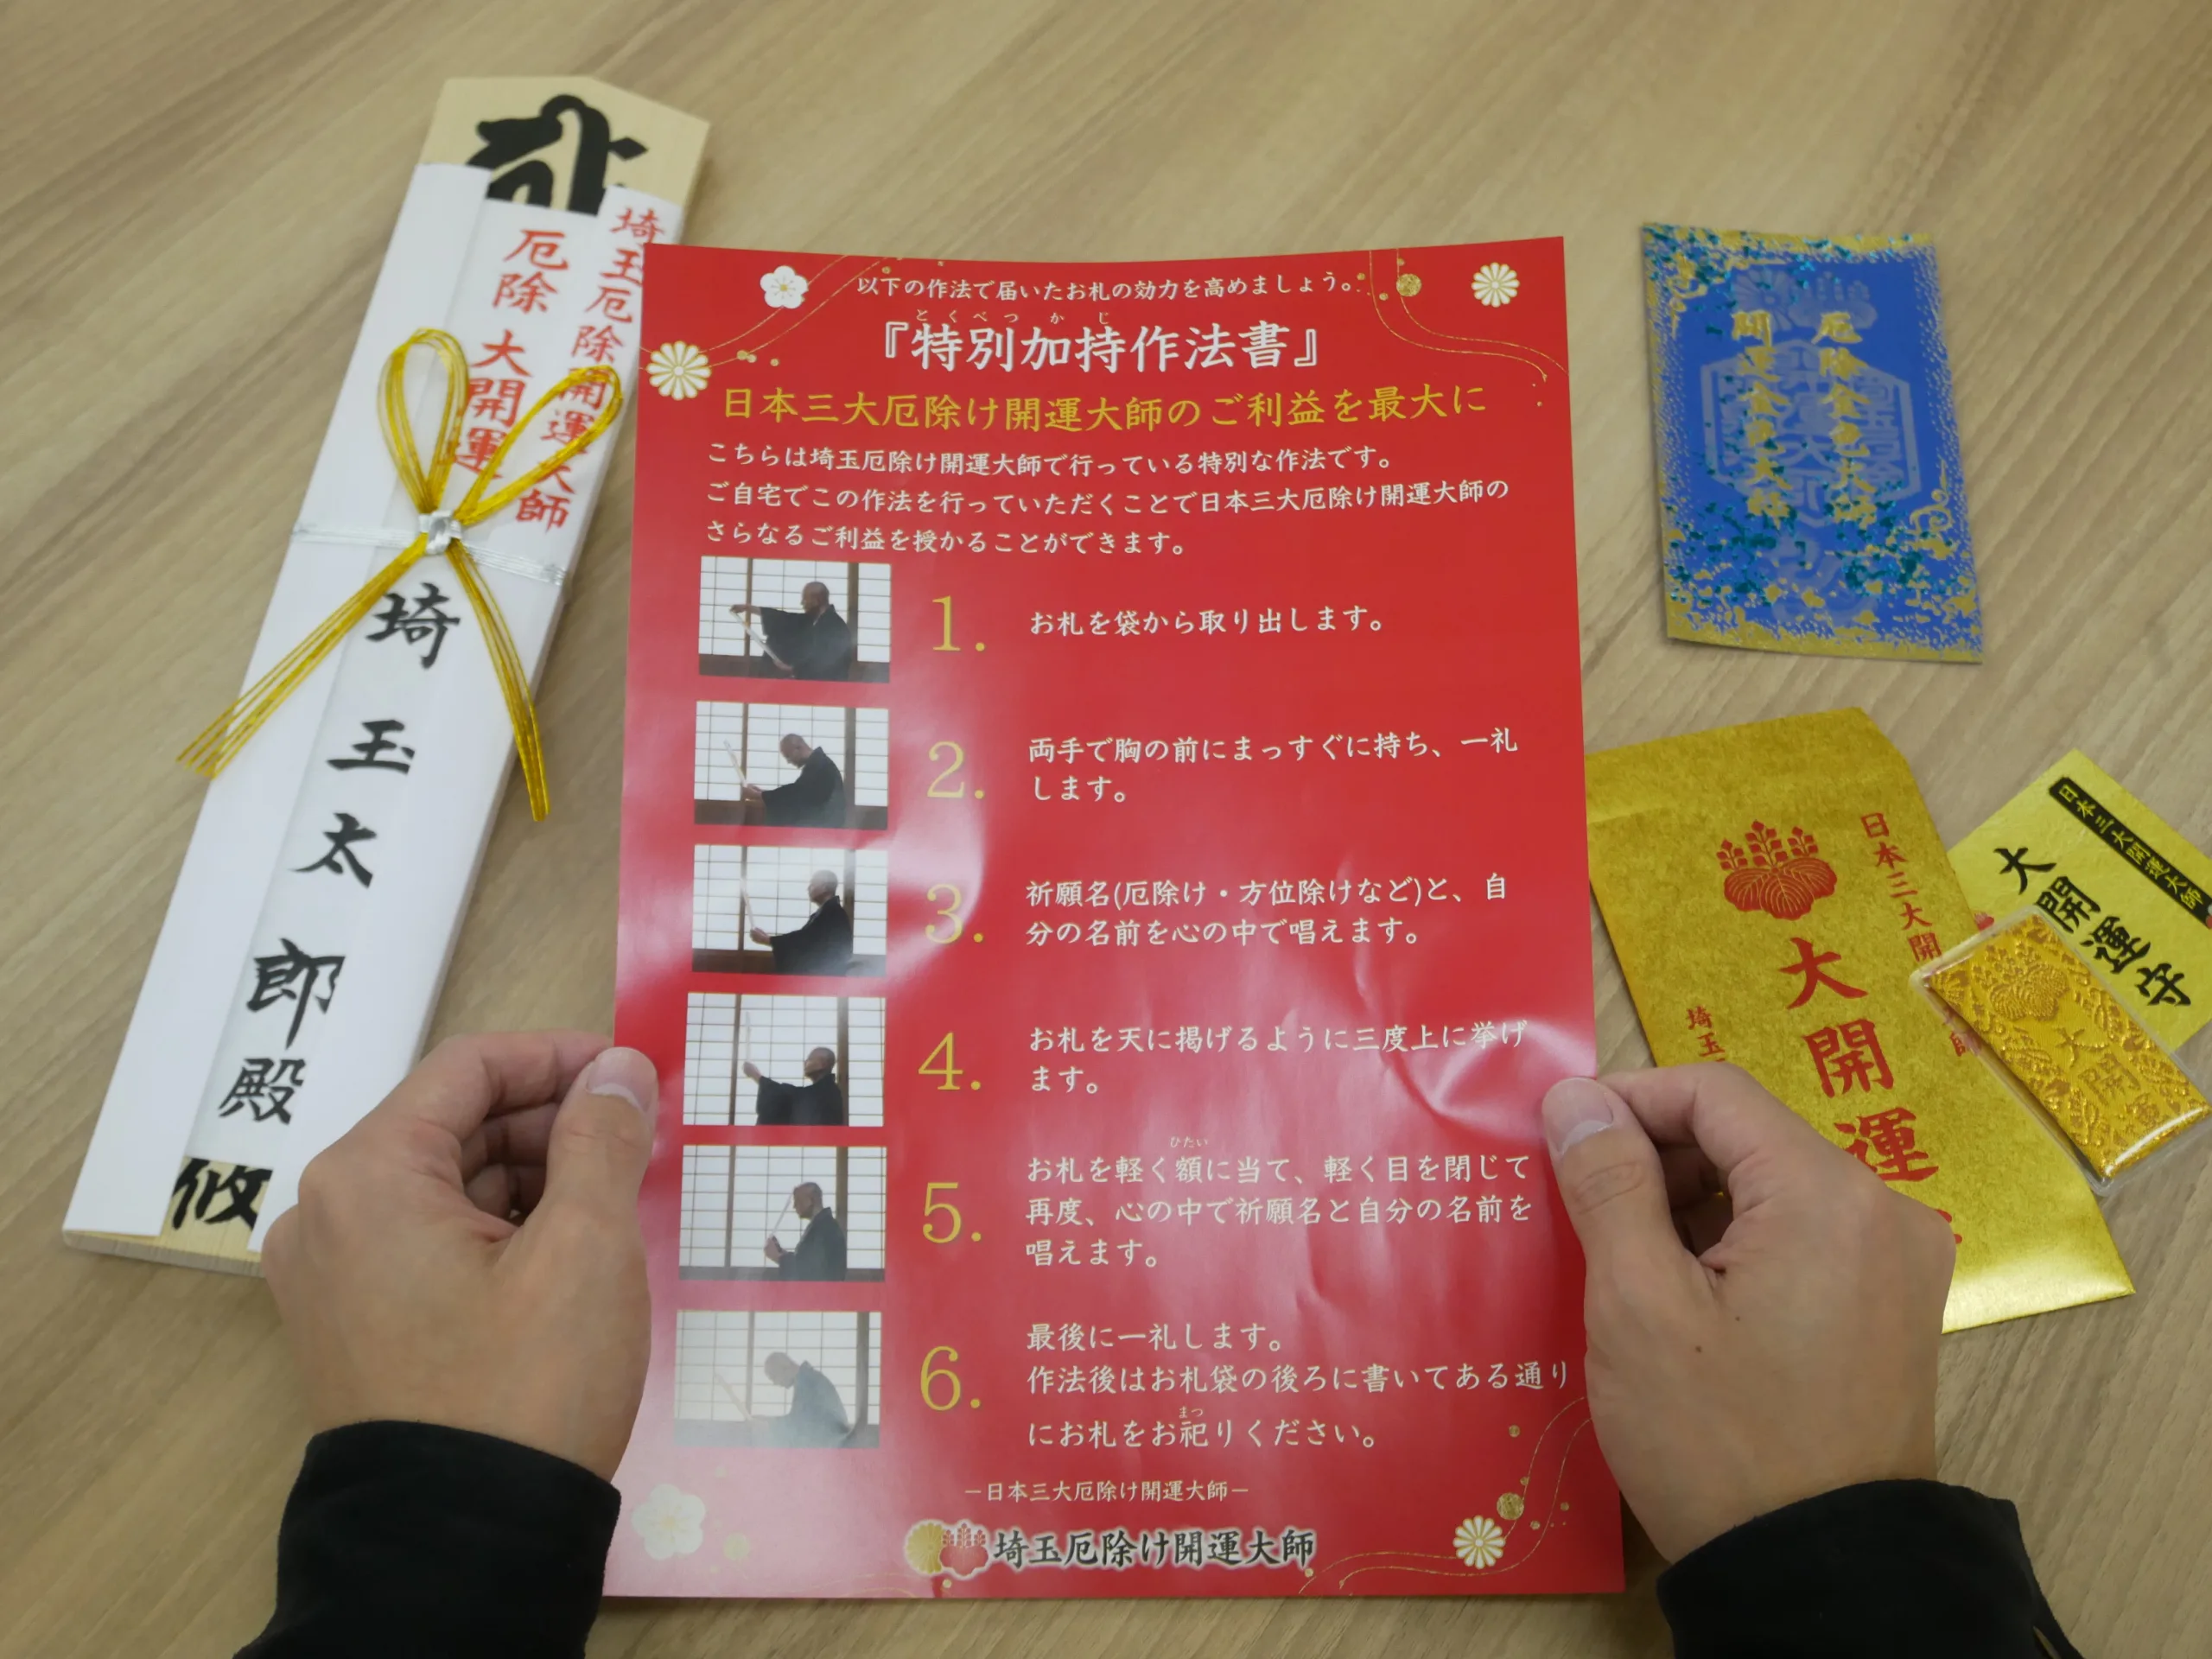 埼玉厄除開運大師
厄除 大開運
埼玉太郎殿
以下の作法で届いたお札の効力を高めましょう。
とくべつ かじ
『特別加持作法書』
日本三大厄除け開運大師のご利益を最大に
こちらは埼玉厄除け開運大師で行っている特別な作法です。
ご自宅でこの作法を行っていただくことで日本三大厄除け開運大師の
さらなるご利益を授かることができます。
1. お札を袋から取り出します。
2. 両手で胸の前にまっすぐに持ち、一礼
します。
3. 祈願名(厄除け・方位除けなど)と、自
分の名前を心の中で唱えます。
4. お札を天に掲げるように三度上に挙げ
ます。
ひたい
5. お札を軽く額に当て、軽く目を閉じて
再度、心の中で祈願名と自分の名前を
唱えます。
6. 最後に一礼します。
作法後はお札袋の後ろに書いてある通り
まつ
にお札をお祀りください。
－日本三大厄除け開運大師－
埼玉厄除け開運大師
厄除金色大師
開運金色大師
日本三大開
大開運
埼玉
師
日本三大開運大師
大開運守
大開運